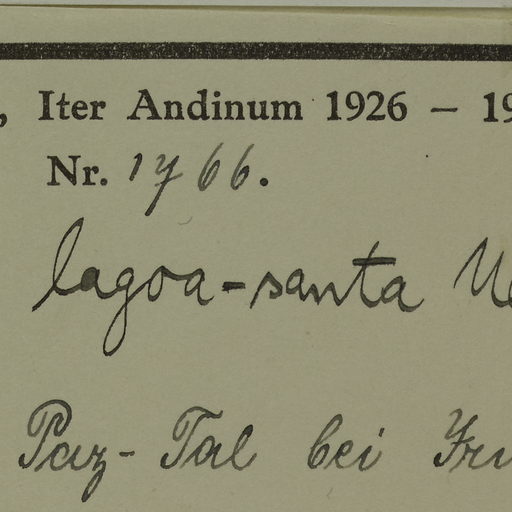 , Iter Andinum 1926 – 19
Nr. 1766.
lagoa-santa
Paz-Tal bei